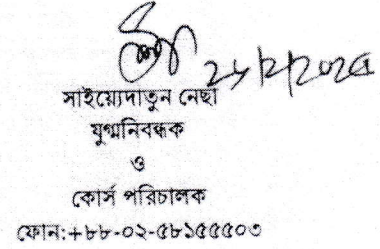 সাইয়্যেদাতুন নেছা
যুগ্মনিবন্ধক
ও
কোর্স পরিচালক
ফোন:+৮৮-০২-৫৮১৫৫৫০৩